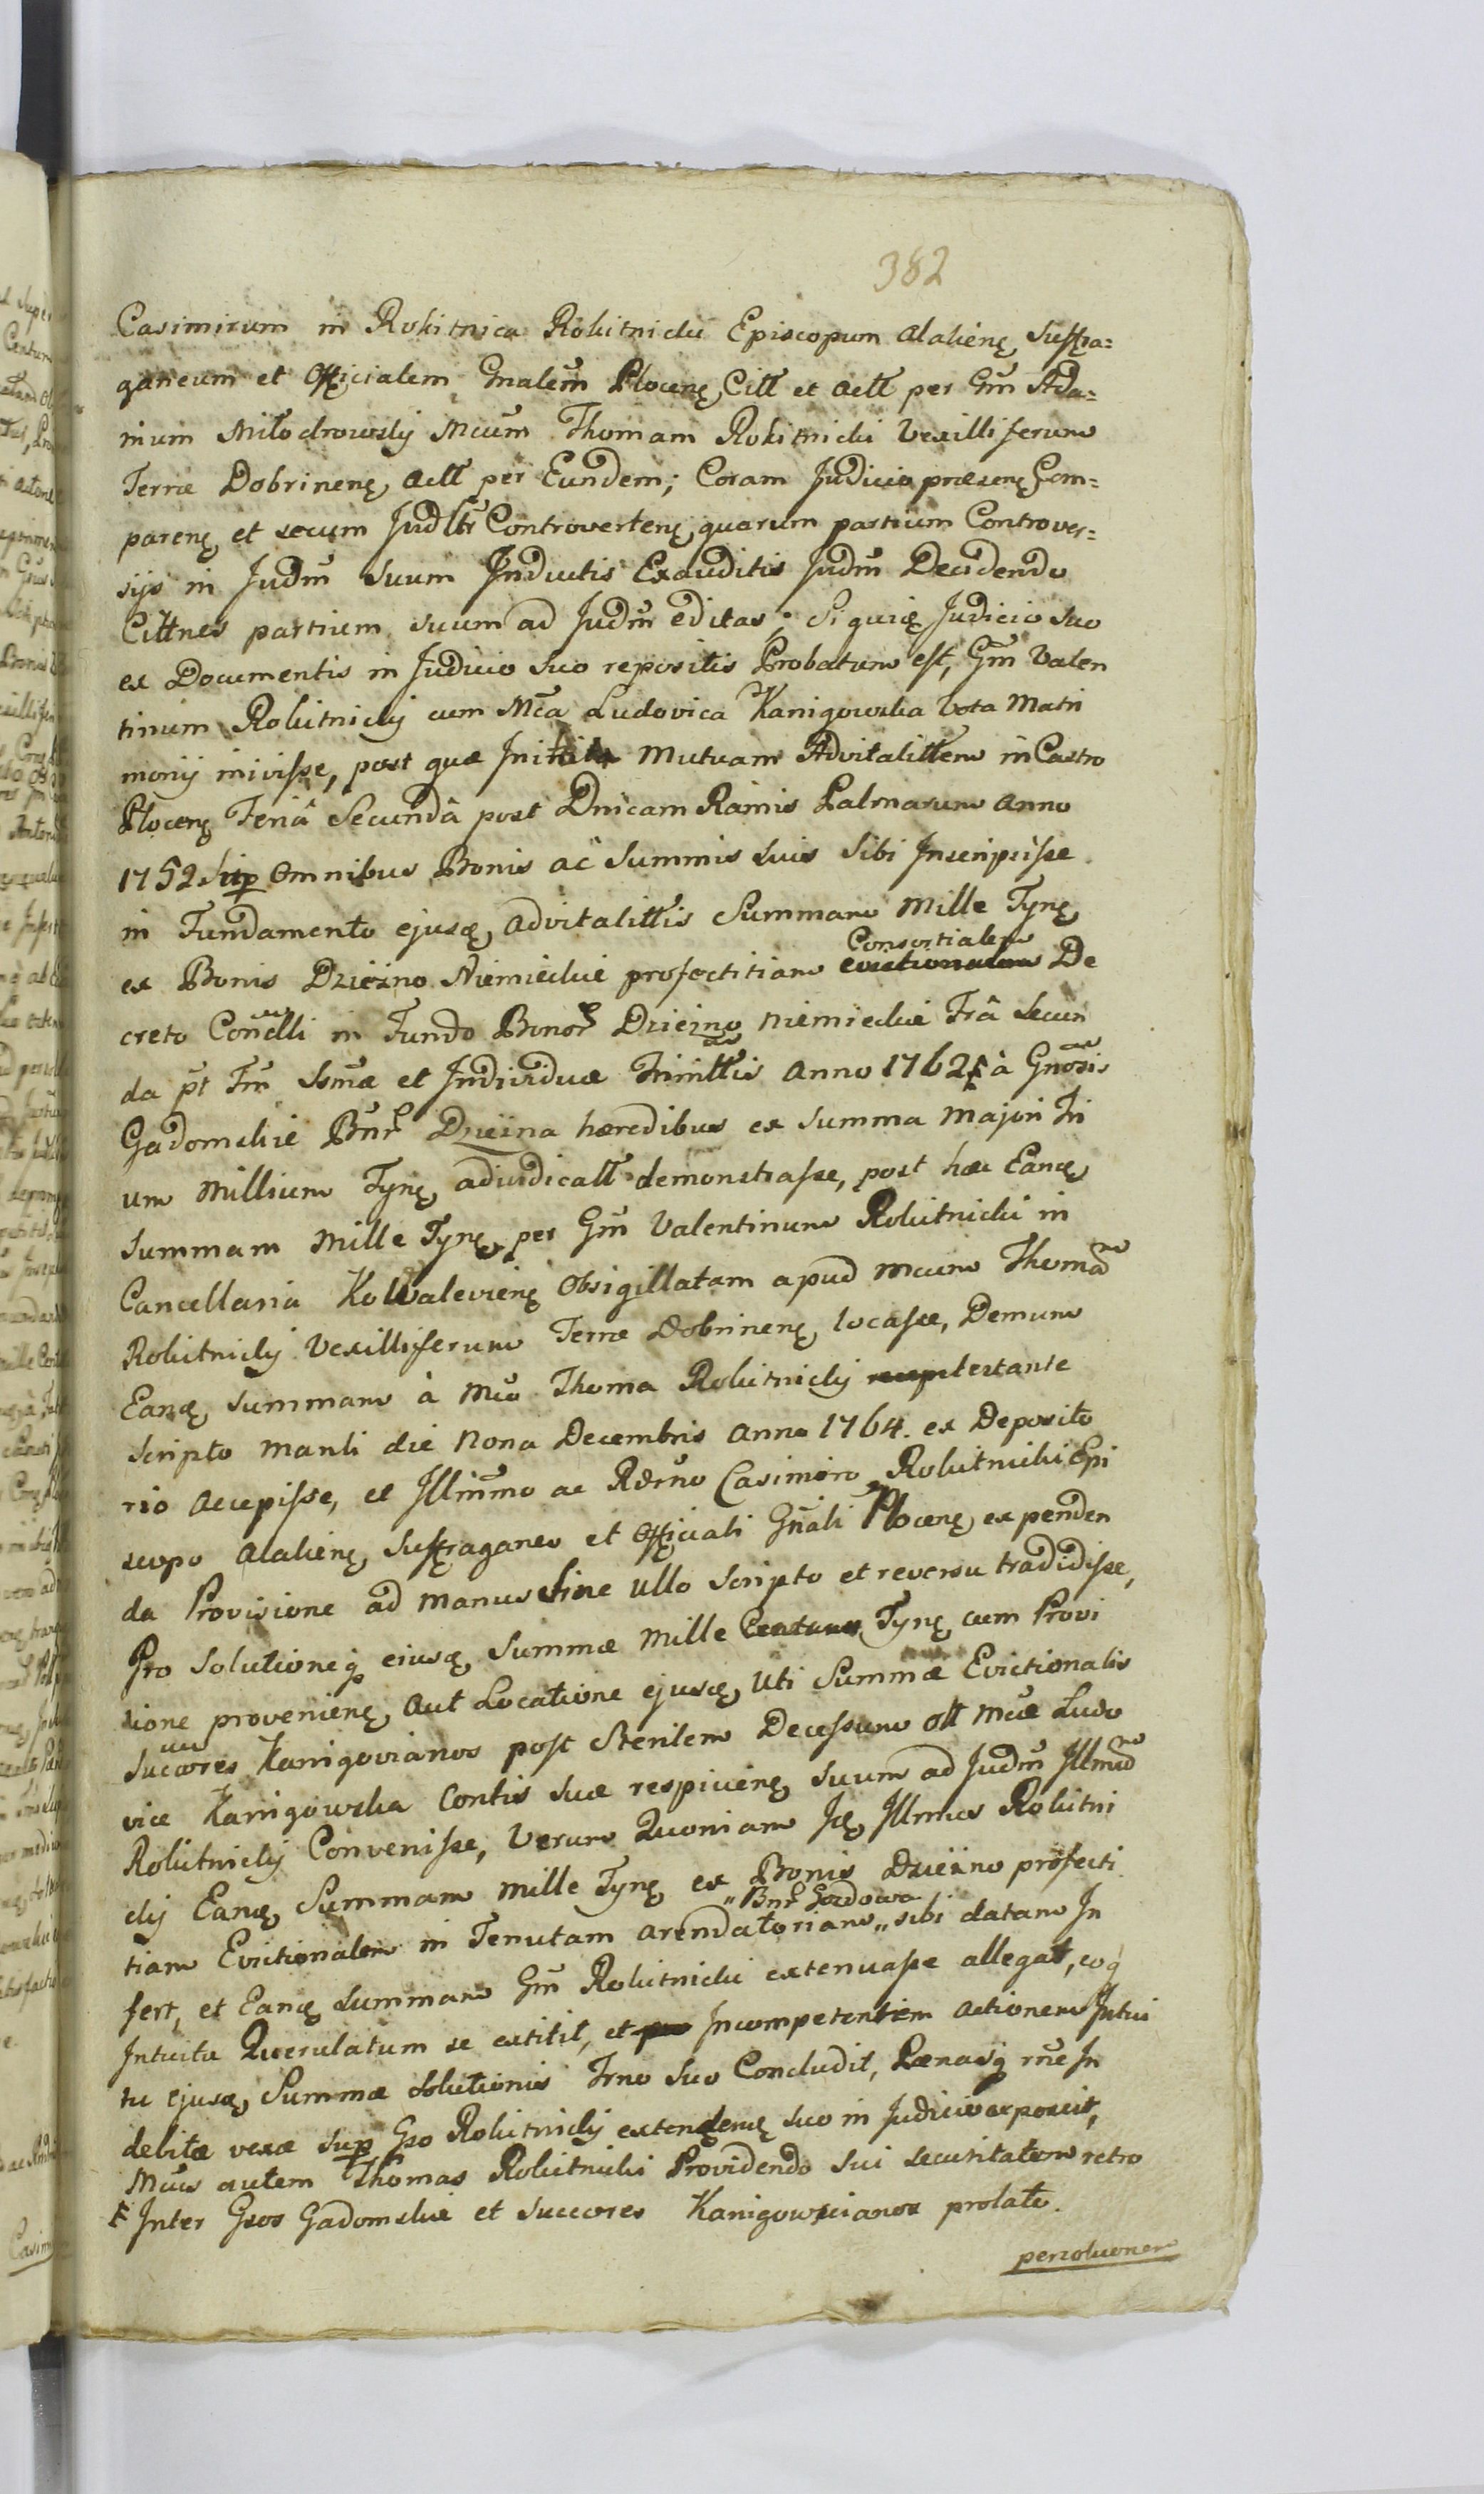 382
Casimirum in Rokitnica Rokitnicki Episcopum Alalienę Suffra=
ganeum et Officialem Gnalem̃ Plocenę Citt et actt per Gm̃ Ada=
mum Miłodrowsky Mcum̃ Thomam Rokitnicki Vexilliferum
Terræ Dobrinenę actt per Eundem; Coram Judicio præsenę Com=
parenę et secum Judltr̃ Controvertenę quarum partium Controver=
sijs in Judm̃ suum Inductis Exauditis Judm̃ Decidendo
Cittnes partium suum ad Judm̃ editas; Siquię Judicio suo
ex Documentis in Judicio suo repositis Probatum est, Gm̃ Valen
tinum Rokitnicky cum Mca Ludovica Kanigowska Vota Matri
monij inivisse, post quæ Inita Mutuam Advitalittem in Castro
Plocenę Feriâ Secundâ post Dnicam Ramis Palmarum Anno
1752 Sup Omnibus Bonis ac Summis suis Sibi Inscripsisse
in Fundamento ejusę Advitalittis Summam Mille Tynę
Consortialem
ex Bonis Dzieżno Niemieckie profectitiam evictionalem De
creto Concllĩ in Fundo Bonor̃ Dzieżno Niemieckie Fr̃â Secun
da pt̃ Fm̃ Ssmæ et Individuæ Trinittis Anno 1762 F à Gnosis
Gadomskie Bnr̃ Dzieżna hæredibus ex Summa Majori Tri
um Millium Tynę adjudicatt demonstrasse, post hæc Eanę
Summam Mille Tynę per Gm̃ Valentinum Rokitnicki in
Cancellaria Kowalevienę Obsigillatam apud Mcum Thomam̃
Rokitnicky Vexilliferum Terræ Dobrinenę locasse, Demum
Eanę Summam à Mco Thoma Rokitnicky testante
scripto manli die Nona Decembris Anno 1764. ex Deposito
rio accepisse, et Illmmo ac Rdrno Casimiro Rokitnicki Epi
scopo Alalienę Suffraganeo et Officiali Gnali Plocenę expenden
da Provisione ad manus Sine Ullo Scripto et reversu tradidisse,
Pro Solutioneq ejusę Summæ Mille Centum Tynę cum Provi
sione provenienę Aut Locatione ejusę Uti Summæ Evictionalis
Sucores Kanigovianos post Sterilem Decessum Olt Mcæ Ludo
vicæ Kanigowska Contis suæ respicienę Suum ad Judm̃ Illmum̃
Rokitnicky Convenisse, Verum Quoniam Ię Illmus Rokitni
cky Eanę Summam Mille Tynę ex Bonis Dzieżno profecti
„Bnr̃
tiam Evictionalem in Tenutam arendatoriam „ sibi datam In
fert, et Eanę Summam Gm̃ Rokitnicki extenuasse allegat, eoq
Intuitu Querulatum se extitit, et Incompetentem actionem Intui
tu Ejusę Summæ Solutionis Trno suo Concludit, Pœnasq rñe In
debitæ vexæ sup Gso Rokitnicky extendenę suo in Judicio exposcit,
Mcus autem Thomas Rokitnicki Providendo sui securitatem retro
F Inter Gsos Gadomskie et Succores Kanigowscianos prolato.
persolutionem